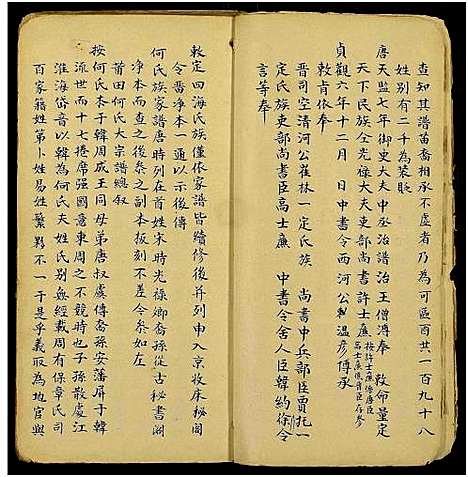 查知其譜苗裔相承不虛者乃為可區百共一百九十八
姓別有二千為裝貶
唐天監七年御史大夫中丞治譜治王僧溥奉　敕命量定
天下民族全光祿大夫吏部尚書許士廉按許士廉係唐臣
高士廉係唐臣存參
貞觀六年十二月　日中書令西河公溫彥傳承
敕肯依奉
晉司空清河公崔林一定氏族　尚書中兵部臣賈托一
定氏族吏部尚書臣高士廉　中書令舍人臣韓約徐令
言等奉
敕定四海氏族僅依家譜皆續修後并列申入京收床秘閣
令番淨本一通以示後傳
何氏族家譜唐時列在首姓宋時光祿卿裔孫從古秘書閣
淨本而查之後叅之副本板刻不差今叅如左
莆田何氏大宗譜總叙
按何氏本于韓周成王同母弟唐叔虞傳裔孫安藩屏于韓
流世而十七捲席强國意東周之不競時也子孫散處江
淮海岱音以韓為何氏夫姓氏別無經載周有保章氏司
百家籍姓第卜姓易姓繁夥不一于是乎義取為地官與